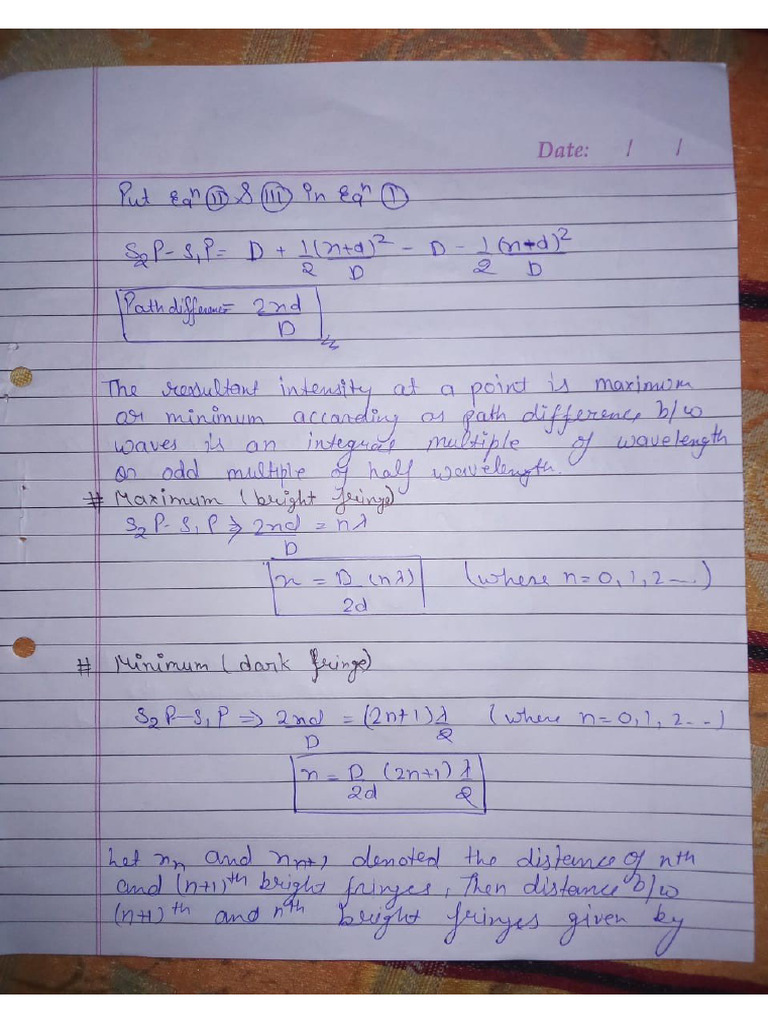 Date: / /
Put Eqⁿ (II) & (III) in Eqⁿ (I)
S₂P - S₁P = D + 1/2 (x+d)²/D - D - 1/2 (x+d)²/D
Path difference = 2xd/D
The resultant intensity at a point is maximum
or minimum according as path difference b/w
waves is an integral multiple of wavelength
or odd multiple of half wavelength.
# Maximum (bright fringe)
S₂P - S₁P ⇒ 2xd/D = nλ
x = D/2d (nλ) (where n = 0, 1, 2 ---)
# Minimum (dark fringe)
S₂P - S₁P ⇒ 2xd/D = (2n+1) λ/2 (where n = 0, 1, 2 - - -)
x = D/2d (2n+1) λ/2
Let xₙ and xₙ₊₁ denoted the distance of nth
and (n+1)ᵗʰ bright fringes, Then distance b/w
(n+1)ᵗʰ and nᵗʰ bright fringes given by